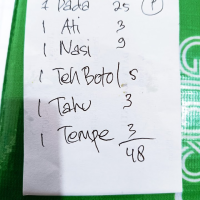 1 Dada 25 (P)
1 Ati 3
1 Nasi 9
1 Teh Botol 5
1 Tahu 3
1 Tempe 3
48